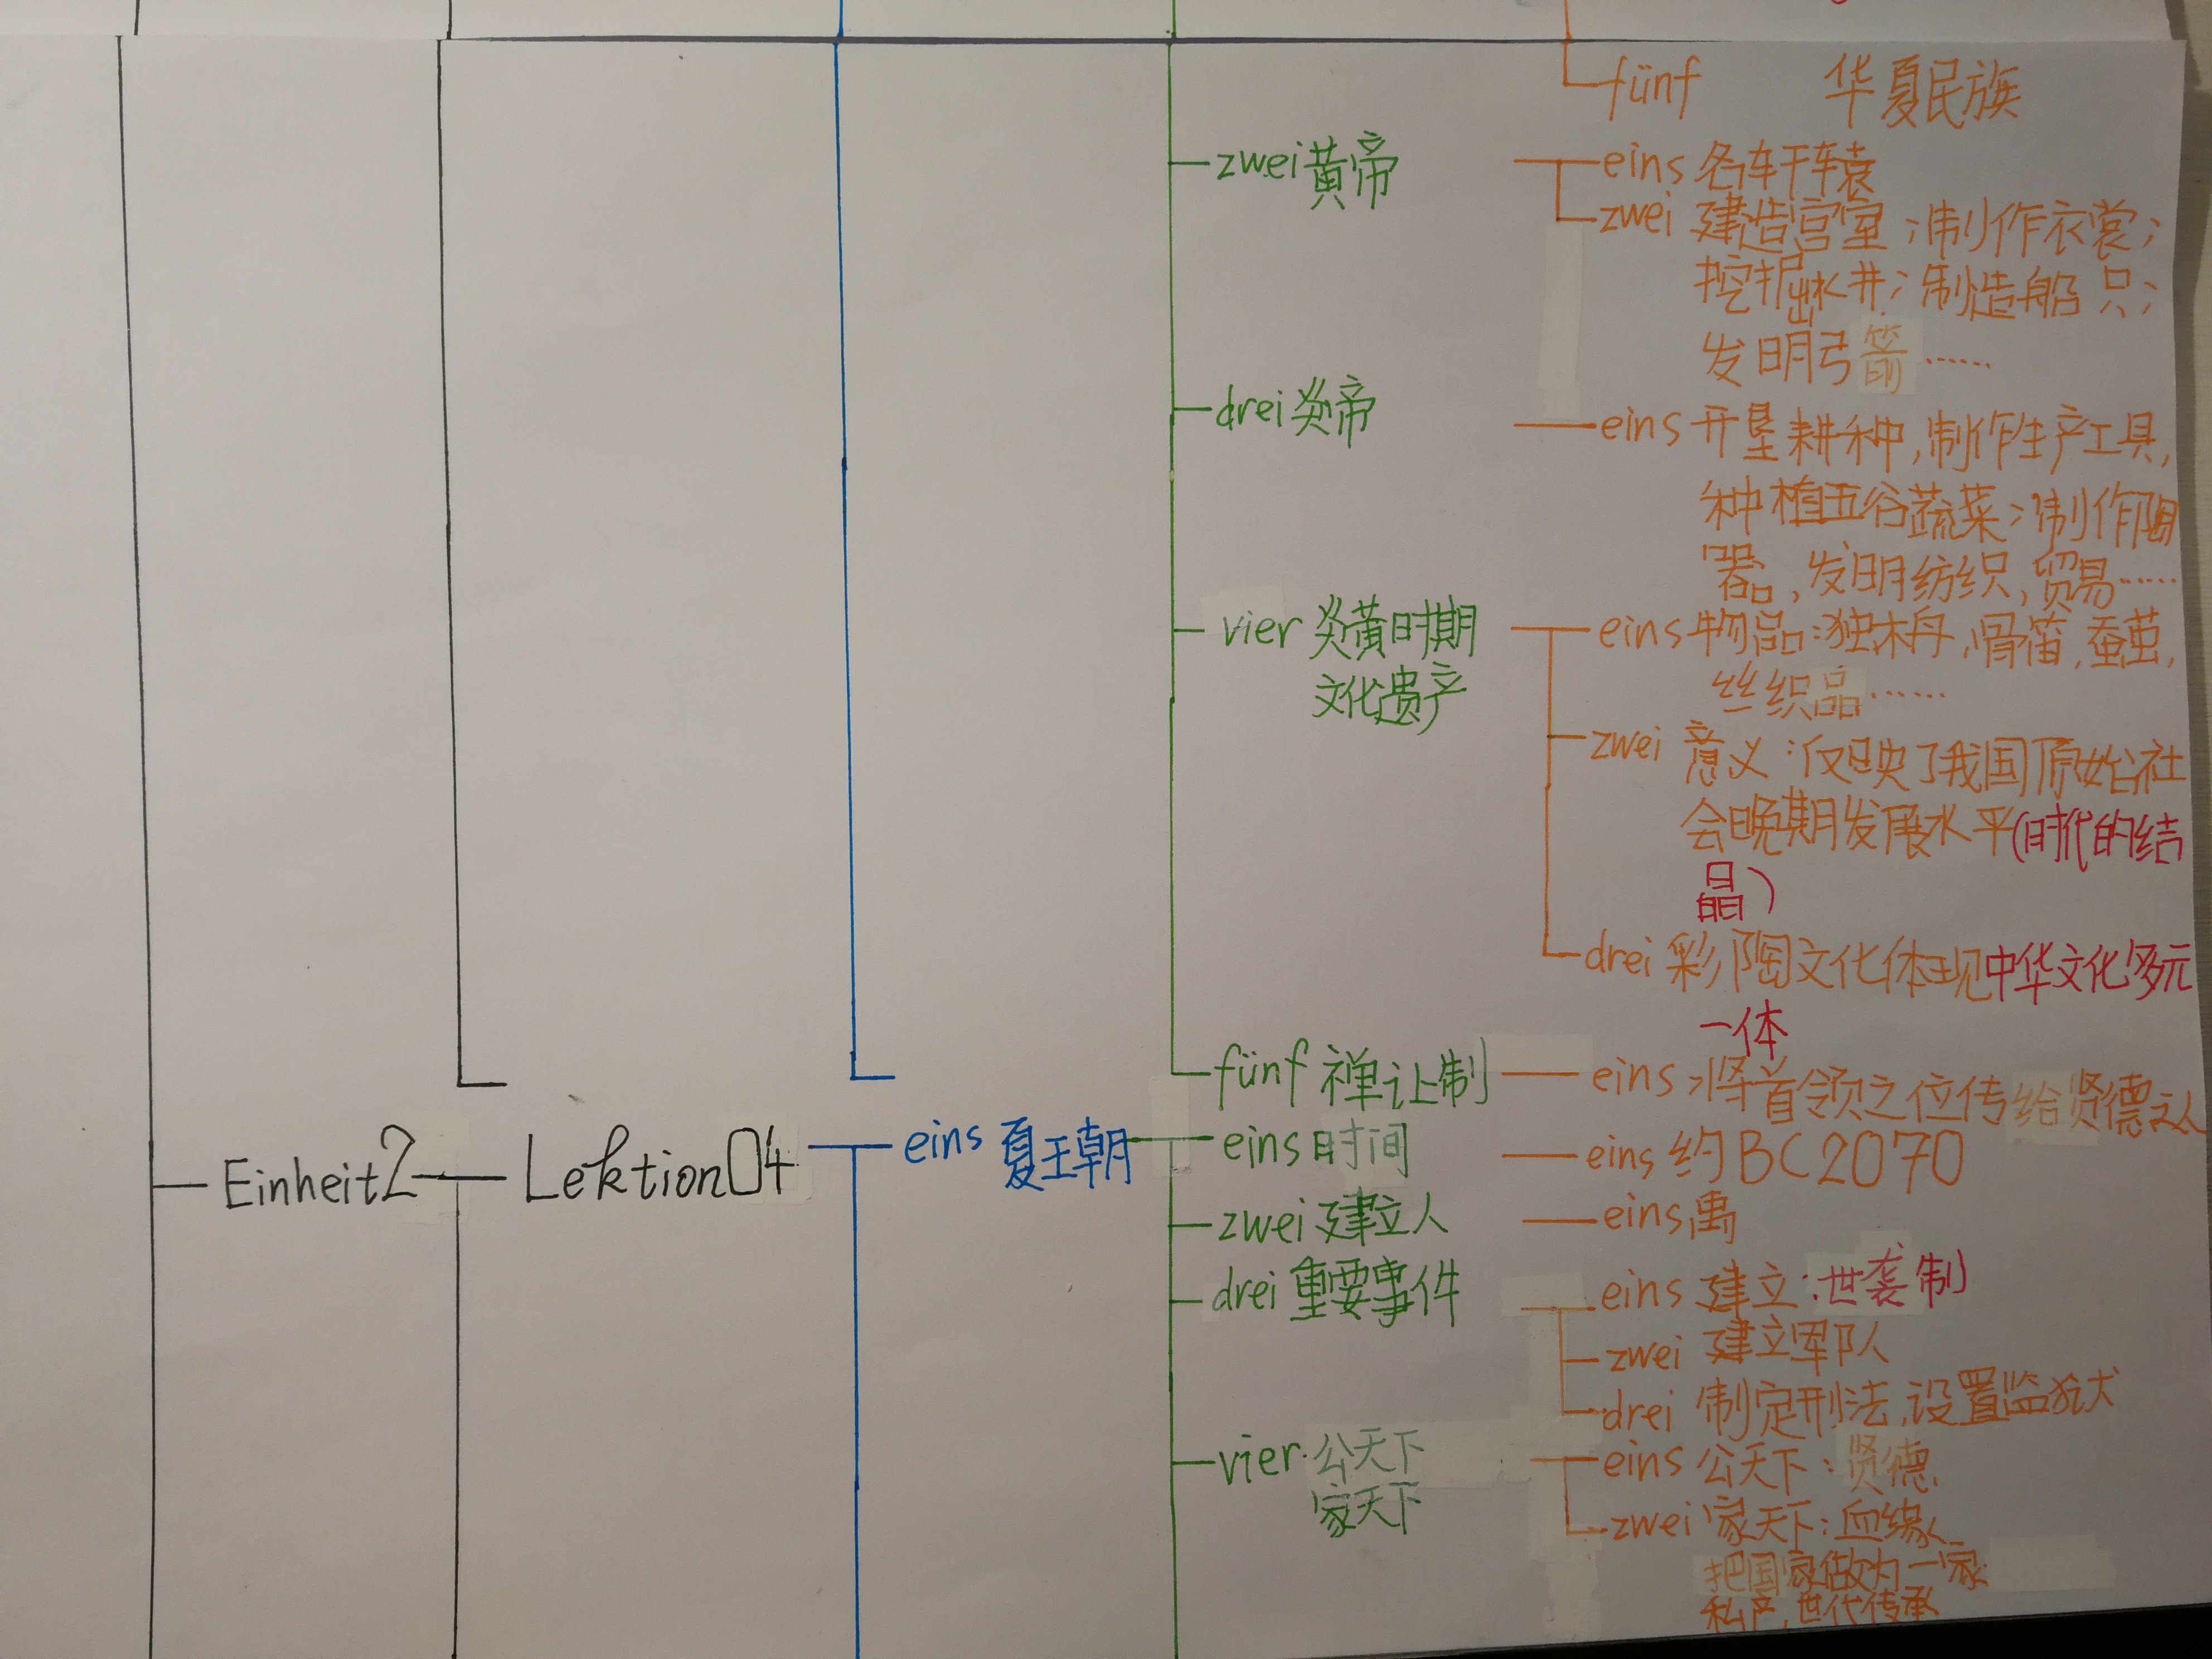 fünf 华夏民族
zwei 黄帝
eins 名轩辕
zwei 建造宫室;制作衣裳;
挖掘水井;制造船只;
发明弓箭……
drei 炎帝
eins 开垦耕种,制作生产工具,
种植五谷蔬菜;制作陶
器,发明纺织,贸易……
vier 炎黄时期
文化遗产
eins 物品:独木舟,骨笛,蚕茧,
丝织品……
zwei 意义:反映了我国原始社
会晚期发展水平(时代的结
晶)
drei 彩陶文化体现中华文化多元
一体
fünf 禅让制
eins 将首领之位传给贤德之人
Einheit2
Lektion04
eins 夏王朝
eins 时间
eins 约BC2070
zwei 建立人
eins 禹
drei 重要事件
eins 建立:世袭制
zwei 建立军队
drei 制定刑法,设置监狱
vier 公天下
家天下
eins 公天下:贤德
zwei 家天下:血缘
把国家做为一家
私产,世代传承